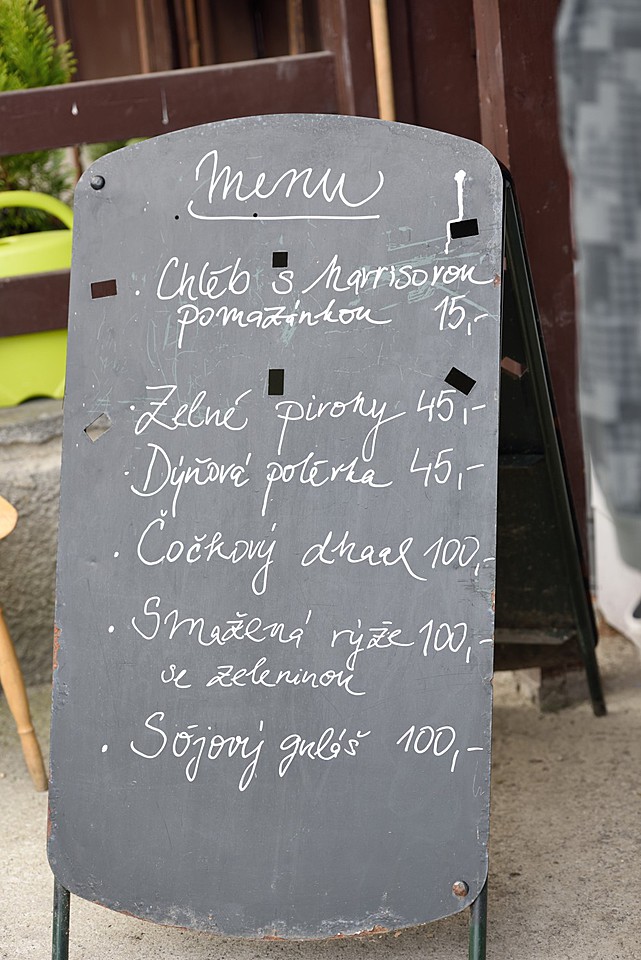 Menu
· Chléb s harrisovou
pomazánkou 15,-
· Zelné pirohy 45,-
· Dýňová polévka 45,-
· Čočkový dhaal 100,-
· Smažená rýže 100,-
se zeleninou
· Sójový guláš 100,-